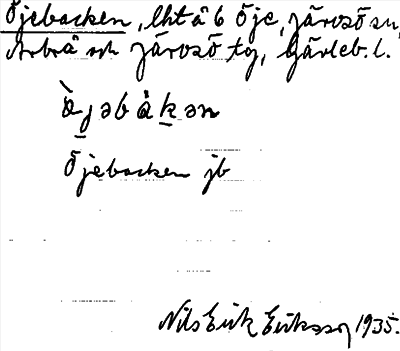 Öjebacken, lht å 6 Öje, Järvsö sn,
Arbrå och Järvsö tg, Gävleb. l.
Öjebacken jb
Nils Erik Eriksson 1935.